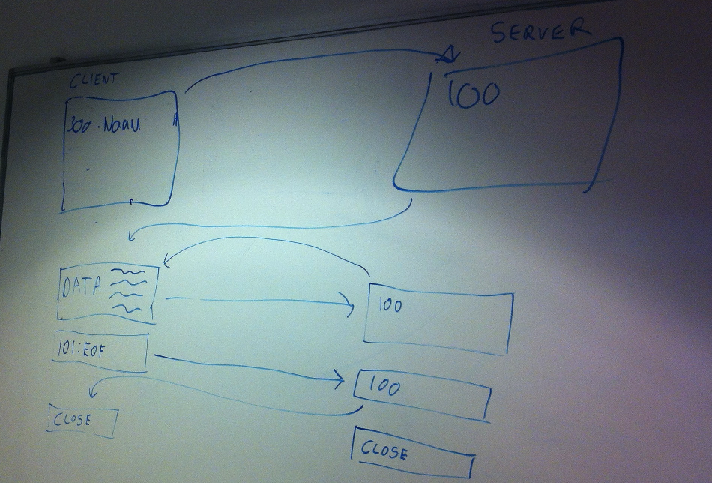 CLIENT
SERVER
100
DATA
100
101:EOF
100
CLOSE
CLOSE